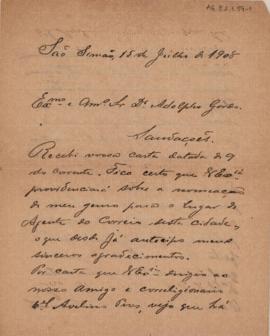 São Simão, 15 de Julho de 1908
Exmo e Amo Sr Dr Adolpho Gordo.
Saudações.
Recebi vossa carta datada de 9
do corrente. Fico certo que V Exa
providenciará sobre a nomeação
de meu genro para o lugar de
Agente do Correio desta cidade,
o que desde já antecipo meus
sinceros agradecimentos.
Por carta que V Exa dirigio ao
nosso Amigo e correligionario
Cel Avelino, vejo que há